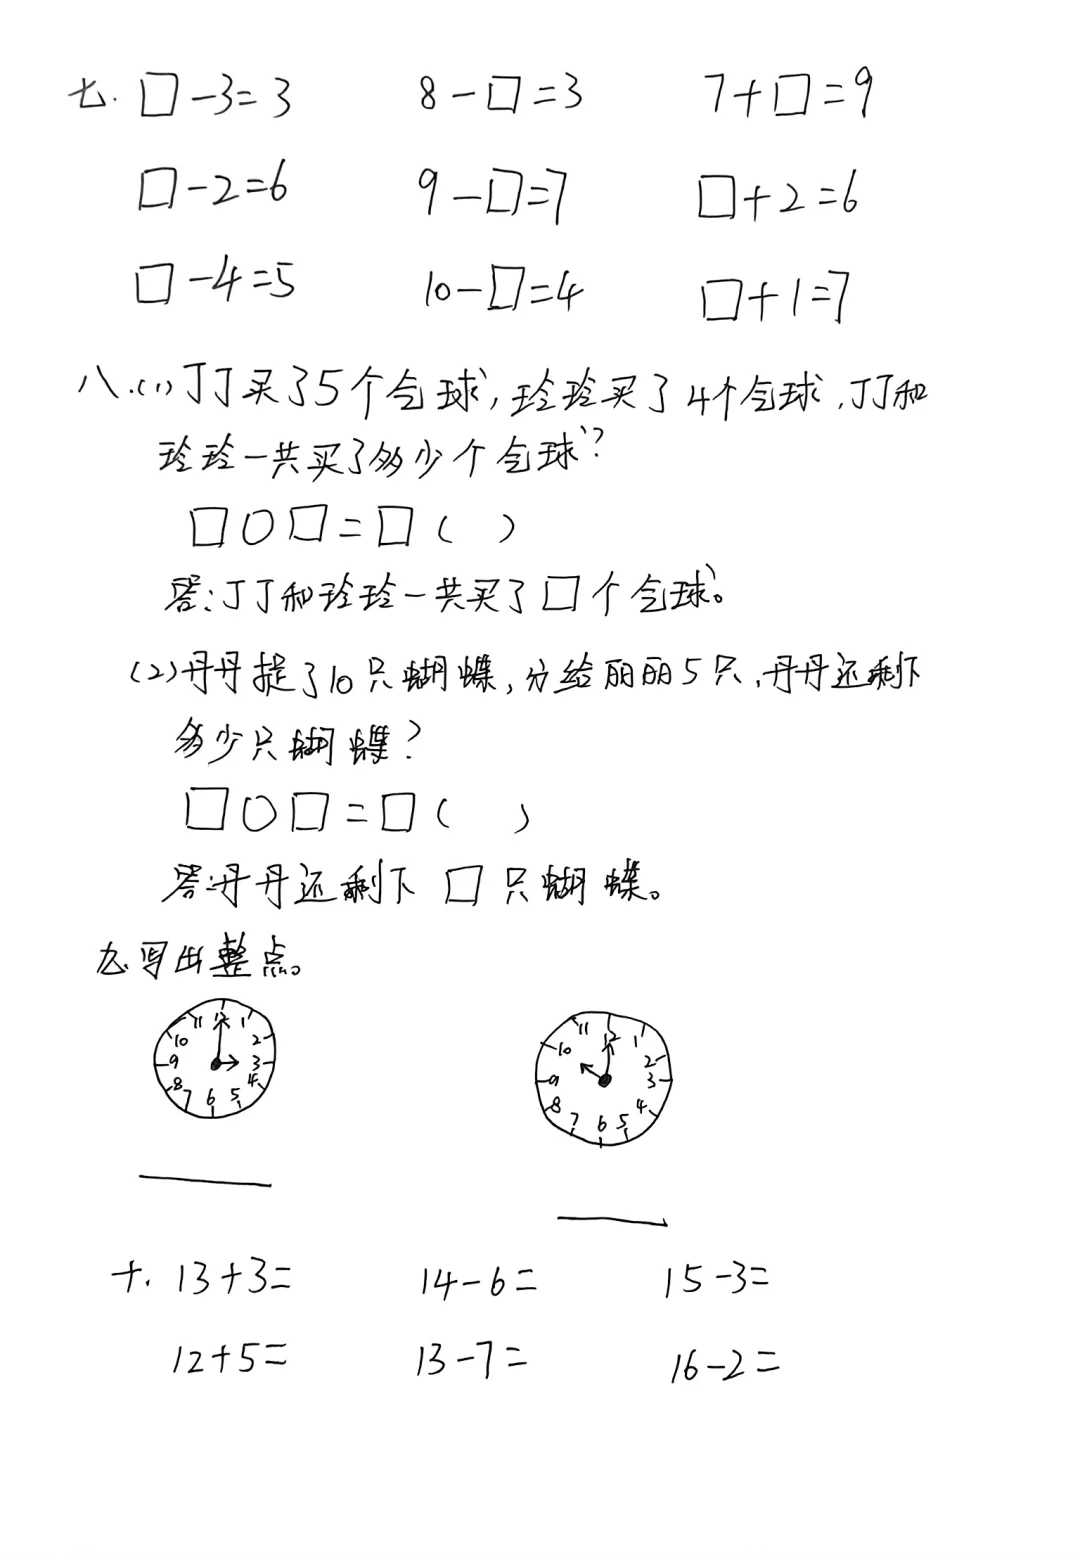 七. □-3=3 8-□=3 7+□=9
□-2=6 9-□=7 □+2=6
□-4=5 10-□=4 □+1=7
八.(1)丁丁买了5个气球,玲玲买了4个气球,丁丁和
玲玲一共买了多少个气球?
□○□=□( )
答:丁丁和玲玲一共买了□个气球。
(2)丹丹捉了10只蝴蝶,分给丽丽5只,丹丹还剩下
多少只蝴蝶?
□○□=□( )
答:丹丹还剩下□只蝴蝶。
九.写出整点。
11 12 1
10 2
9 3
8 4
7 6 5
11 12 1
10 2
9 3
8 4
7 6 5
十. 13+3= 14-6= 15-3=
12+5= 13-7= 16-2=